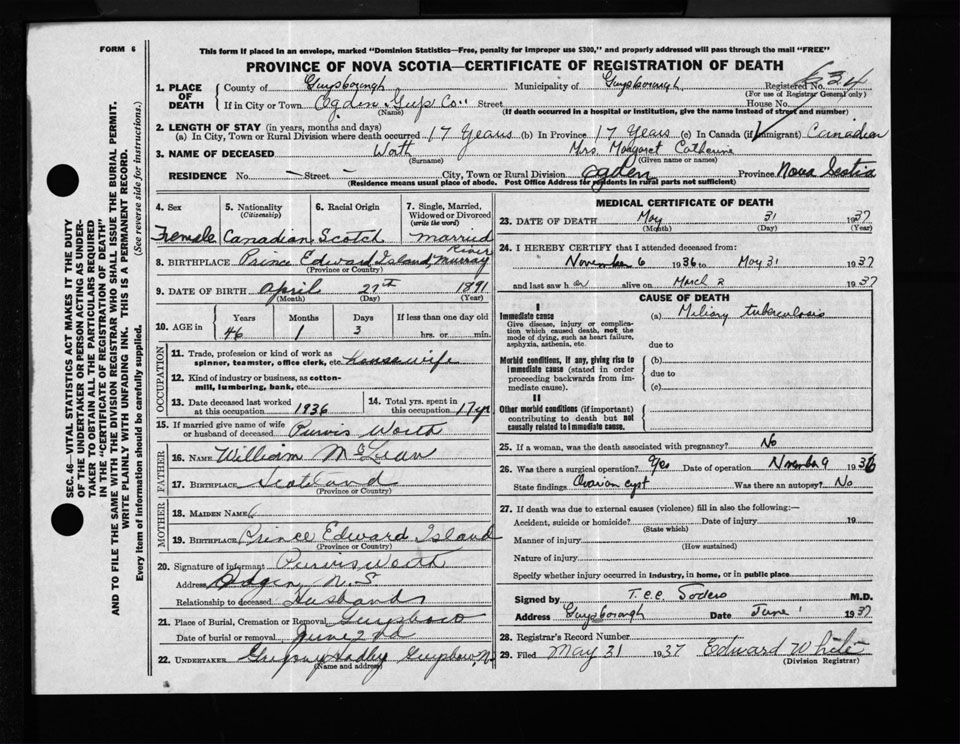 FORM 6
This form if placed in an envelope, marked "Dominion Statistics—Free, penalty for improper use $300," and properly addressed will pass through the mail "FREE"
PROVINCE OF NOVA SCOTIA—CERTIFICATE OF REGISTRATION OF DEATH
1. PLACE OF DEATH
County of Guysborough Municipality of Guysborough Registered No. 634
(For use of Registrar General only)
If in City or Town Ogden Guys Co. Street House No.
(Name) (If death occurred in a hospital or institution, give the name instead of street and number)
2. LENGTH OF STAY (in years, months and days)
(a) In City, Town or Rural Division where death occurred 17 Years (b) In Province 17 Years (c) In Canada (if immigrant) Canadian
3. NAME OF DECEASED Worth Mrs. Margaret Catherine
(Surname) (Given name or names)
RESIDENCE No. — Street - City, Town or Rural Division Ogden Province Nova Scotia
(Residence means usual place of abode. Post Office Address for residents in rural parts not sufficient)
4. Sex
Female
5. Nationality
(Citizenship)
Canadian
6. Racial Origin
Scotch
7. Single, Married, Widowed or Divorced
(write the word)
married
8. BIRTHPLACE Prince Edward Island, Murray River
(Province or Country)
9. DATE OF BIRTH April 27th 1891
(Month) (Day) (Year)
10. AGE in
Years Months Days If less than one day old
46 1 3 hrs. or min.
OCCUPATION
11. Trade, profession or kind of work as spinner, teamster, office clerk, etc. housewife
12. Kind of industry or business, as cotton-mill, lumbering, bank, etc.
13. Date deceased last worked at this occupation 1936
14. Total yrs. spent in this occupation 17 yr
15. If married give name of wife or husband of deceased Purvis Worth
FATHER
16. NAME William McLean
17. BIRTHPLACE Scotland
(Province or Country)
MOTHER
18. MAIDEN NAME
19. BIRTHPLACE Prince Edward Island
(Province or Country)
20. Signature of informant Purvis Worth
Address Ogden, N.S
Relationship to deceased Husband
21. Place of Burial, Cremation or Removal Guysboro
Date of burial or removal June 2nd
22. UNDERTAKER Gregory Hadley Guysboro N.
(Name and address)
MEDICAL CERTIFICATE OF DEATH
23. DATE OF DEATH May 31 1937
(Month) (Day) (Year)
24. I HEREBY CERTIFY that I attended deceased from:
November 6 1936 to May 31 1937
and last saw h er alive on March 2 1937
CAUSE OF DEATH
I
Immediate cause
Give disease, injury or complication which caused death, not the mode of dying, such as heart failure, asphyxia, asthenia, etc.
(a) Miliary tuberculosis
due to
Morbid conditions, if any, giving rise to immediate cause (stated in order proceeding backwards from immediate cause).
(b)
due to
(c)
II
Other morbid conditions (if important) contributing to death but not causally related to immediate cause.
25. If a woman, was the death associated with pregnancy? No
26. Was there a surgical operation? Yes Date of operation November 9 1936
State findings Ovarian cyst Was there an autopsy? No
27. If death was due to external causes (violence) fill in also the following:—
Accident, suicide or homicide? Date of injury 19
(State which)
Manner of injury
(How sustained)
Nature of injury
Specify whether injury occurred in industry, in home, or in public place
Signed by T.C.C. Sodero M.D.
Address Guysborough Date June 1 1937
28. Registrar's Record Number
29. Filed May 31 1937 Edward White
(Division Registrar)
SEC. 46—VITAL STATISTICS ACT MAKES IT THE DUTY
OF THE UNDERTAKER OR PERSON ACTING AS UNDER-
TAKER TO OBTAIN ALL THE PARTICULARS REQUIRED
IN THE "CERTIFICATE OF REGISTRATION OF DEATH"
AND TO FILE THE SAME WITH THE DIVISION REGISTRAR WHO SHALL ISSUE THE BURIAL PERMIT.
WRITE PLAINLY WITH UNFADING INK. THIS IS A PERMANENT RECORD.
Every item of information should be carefully supplied. (See reverse side for instructions.)